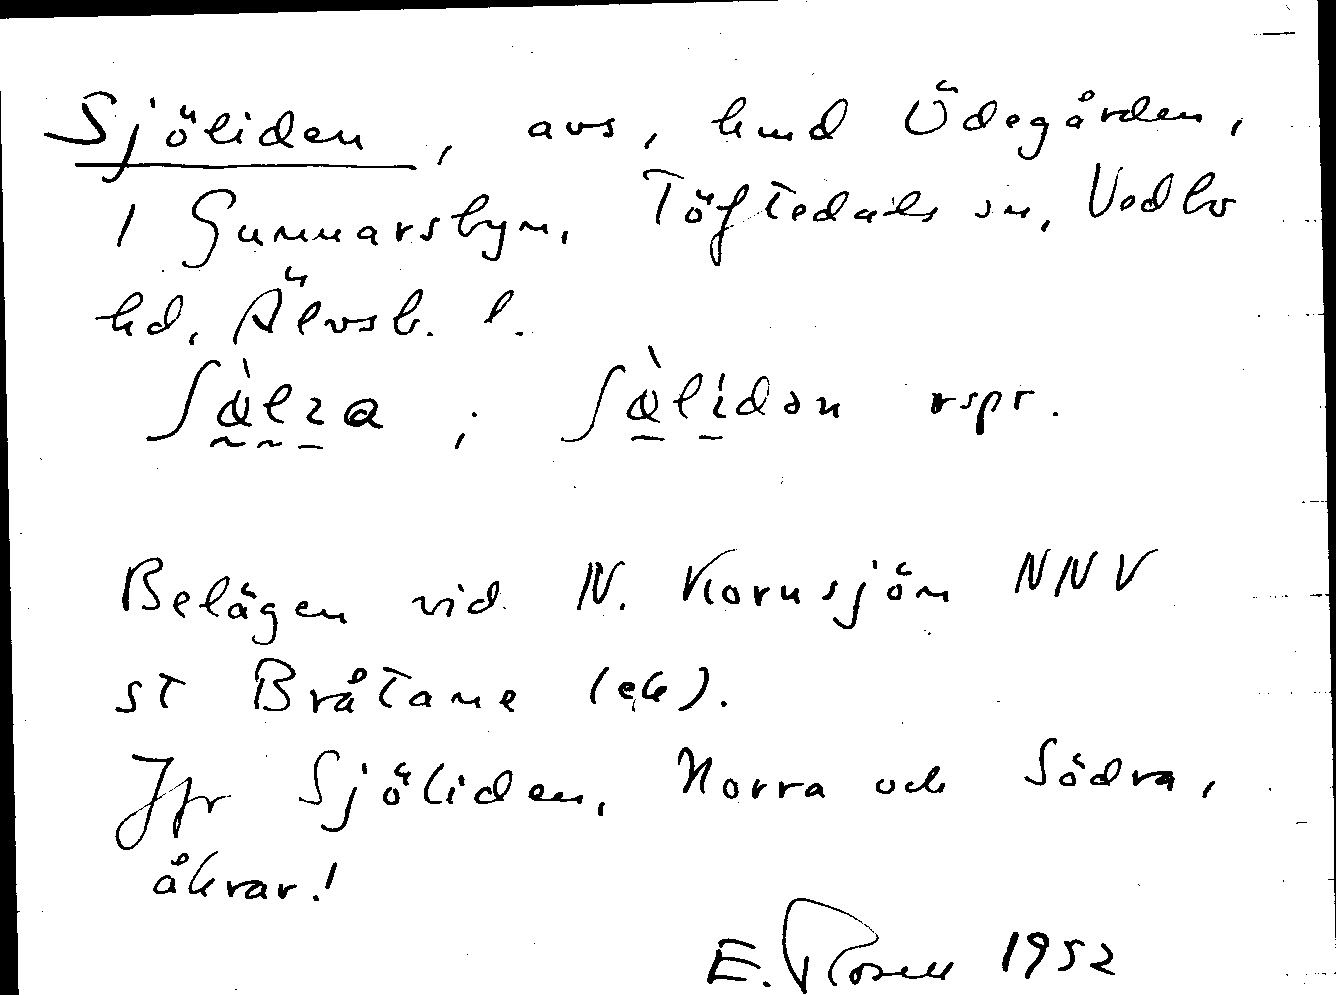 Sjöliden, avs, hmd Ödegården,
1 Gunnarsbyn, Töftedals sn, Vedbo
hd, Älvsb. l.
rspr.
Belägen vid N. Kornsjön NNV
st Bråtane (ek).
Jfr Sjöliden, Norra och Södra,
åkrar!
E. Rosell 1952